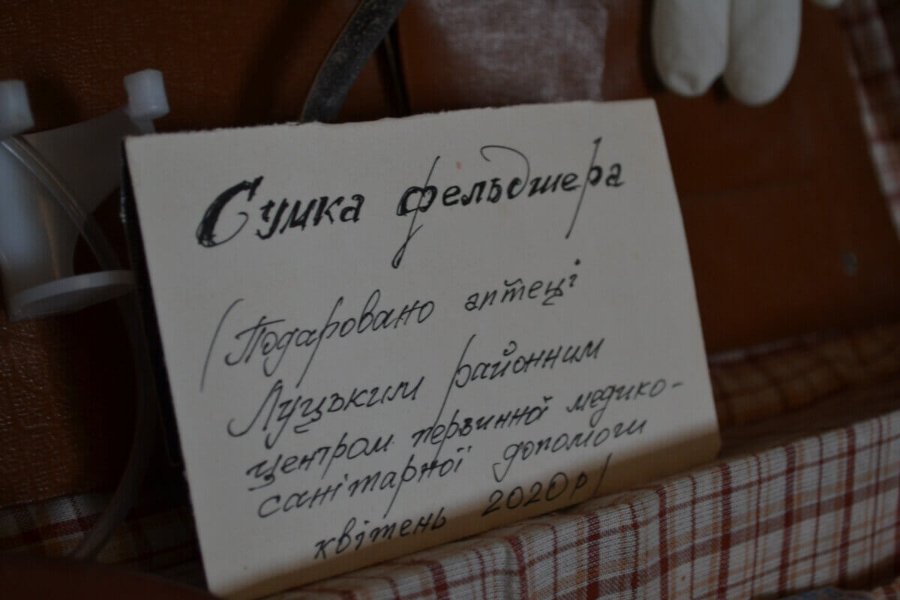 Сумка фельдшера
(Подаровано аптеці
Луцьким районним
центром первинної медико-
санітарної допомоги
квітень 2020р)